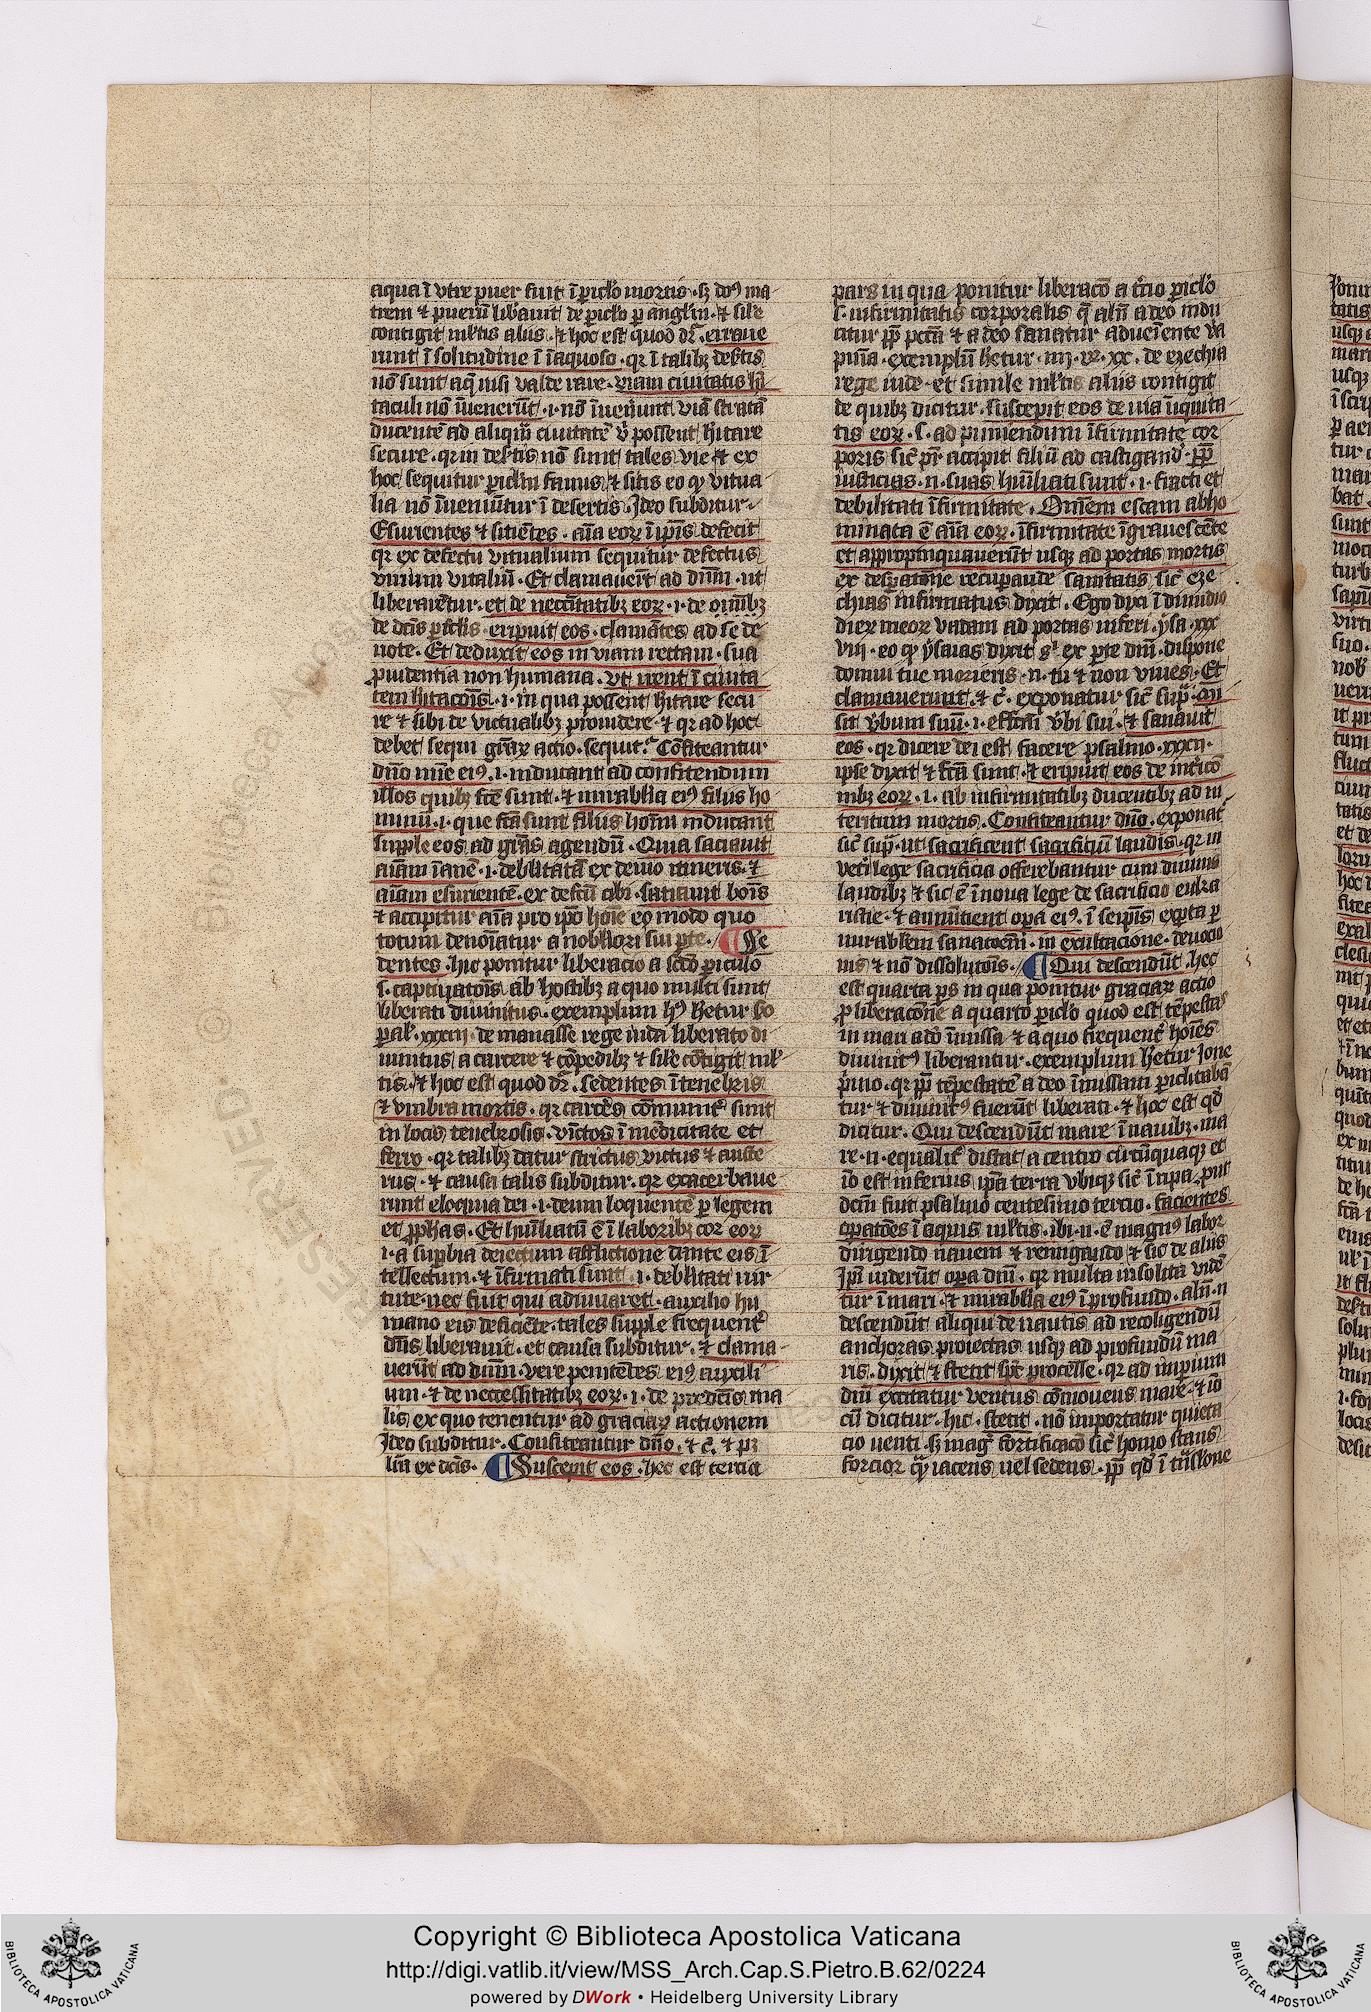 aqua ī vtre puer fuit ī ꝑiclo mortis · sꝫ dn̄s ma
trem ⁊ pueru᷒ libavit de ꝑiclo ꝑ angl'm · ⁊ sile
contigit ml'tis aliis · ⁊ hoc est quod dr̄ · erraue
runt ī solitudine ī īaquoso · qꝛ ī talibꝫ deẜtis
nō sunt aq̄ nisi valde rare · viam ciuitatis hi
taculi nō īuenerūt · i · nō īuenerunt viā stratā
ducentē ad aliquā ciuitatē vt possent hītare
secure · qꝛ in desertis nō sunt tales vie ⁊ ex
hoc sequitur ꝑiclm famis ⁊ sitis eo qꝫ victua
lia nō īueniūtur ī desertis · Ideo subditur ·
Esurientes ⁊ sitiētes · aīa eoꝝ ī ipīs defecit
qꝛ ex defectu victualium sequitur defectus
virium vitaliū · Et clamaverūt ad dn̄m · ut
liberarētur · et de neccītatibꝫ eoꝝ · i · de omībꝫ
de dictis ꝑiclis · eripuit eos · clamātes ad se de
uote · Et deduxit eos in viam rectam · sua
prudentia non humana · Vt irent ī ciuita
tem hītacōis · i · in qua possent hītare secu
re ⁊ sibi de victualibꝫ prouidere · ⁊ qꝛ ad hoc
debet sequi graꝝ actio · sequitur · Cōfiteantur
dn̄o mīe eiꝰ · i · inducant ad confitendum
illos quibꝫ fcē sunt · ⁊ mirabilia eiꝰ filiis ho
minū · i · que fcā sunt filiis hoīm inducant
supple eos ad grās agendū · Quia saciavit
aīam īanē · i · debilitatā ex devio itineris · ⁊
aīam esurientē · ex defcū cibi · satiavit boīs
⁊ accipitur aīa pro ipō hoīe eo modo quo
totum denoīatur a nobiliori sui ꝑte · ¶ Se
dentes · hic ponitur liberacio a sc̄do ꝑiculo
s · captivatōis ab hostibꝫ a quo multi sunt
liberati divinitus · exemplum hꝰ hētur so
ꝑal' · xxxiij · de manasse rege iuda liberato di
uinitus a carcere ⁊ cōpedibꝫ ⁊ sile cōtigit ml'
tis · ⁊ hoc est quod dr̄ · Sedentes ī tenebris
⁊ vmbra mortis · qꝛ carcēs cōmunitꝰ sunt
in locis tenebrosis · vīctos ī mēdicitate et
ferro · qꝛ talibꝫ datur strictus victus ⁊ auste
rus · ⁊ causa talis subditur · qꝛ exacerbaue
runt eloquia dei · i · deum loquentē ꝑ legem
et ꝓphas · Et huīliatū ē ī laboribꝫ cor eoꝝ
i · a suꝑbia deiectum afflictione dante eis ī
tellectum · ⁊ īfirmati sunt · i · debilitati vir
tute · nec fuit qui adiuuaret · auxilio hu
mano eis deficiēte · tales supple frequentꝰ
dn̄s liberavit · et causa subditur · ⁊ clama
uerūt ad dn̄m · vere penitētes eiꝰ auxili
um · ⁊ de neccessitatibꝫ eoꝝ · i · de predictis ma
lis ex quo tenentur ad graciaꝝ actionem
Ideo subditur · Confiteantur dn̄o · ⁊ c̄ · ⁊ pꝫ
lrā ex dictis · ¶ Suscepit eos · hec est tercia
pars in qua ponitur liberacō a t̄cio ꝑiclo
s · infirmitatis corporalis q̄ aliq̄n̄ a deo indu
citur ꝓp̄ pctā ⁊ a deo sanatur adveniente va
pnīa · exemplū hetur · iiij · re · xx · de ezechia
rege iude · et simile ml'tis aliis contigit
de quibꝫ dicitur · suscepit eos de via īiquita
tis eoꝝ · s · ad puniendum īfirmitate cor
poris sic̄ pr̄ accipit filiū ad castigand' · ꝓp̄
iusticias · n · suas huīliati sunt · i · fracti et
debilitati īfirmitate · Omēm escam abho
minata ē aīa eoꝝ · īfirmitate īgravescēte
et appropinquaverūt usqꝫ ad portas mortis
ex desꝑatione recuperande sanitatis sic̄ eze
chias infirmatus dixit · Ego dixi ī dimidio
dieꝝ meoꝝ vadam ad portas inferi · ysa · xxx
viij · eo qꝫ ysaias dixit sꝰ ex ꝑte dn̄i · dispone
domui tue morieris · n · tu ⁊ non vives · Et
clamaverunt · ⁊ c̄ · exponatur sic̄ supᷓ · Mi
sit ꝟbum suū · i · effcm̄ ꝟbi sui · ⁊ sanavit
eos · qꝛ dicere dei est facere psalmo · xxxij ·
ipse dixit ⁊ fcā sunt · ⁊ eripuit eos de int̄icō
nibꝫ eoꝝ · i · ab infirmitatibꝫ ducentibꝫ ad in
teritum mortis · Confiteantur dn̄o · exponat̄
sic̄ supᷓ · ut sacrificent sacrificiū laudis · qꝛ in
vetꝰi lege sacrificia offerebantur cum divinis
laudibꝫ ⁊ sic ē ī nova lege de sacrificio euka
ristie · ⁊ annūtient oꝑa eiꝰ · ī seipīs exꝑta ꝑ
mirabilem sanatōem · in exultacione · devocio
nis ⁊ nō dissolutōis · ¶ Qui descendūt · hec
est quarta ꝑs in qua ponitur graciaꝝ actio
ꝓ liberacōne a quarto ꝑiclo quod est tēpestas
in mari a dō īmissa ⁊ a quo frequentꝰ hoīes
divinitꝰ liberantur · exemplum hetur Ione
primo · qꝛ ꝓp̄ tēpestatē a deo īmissam ꝑiclitabā
tur ⁊ divinitꝰ fuerūt liberati · ⁊ hoc est qđ
dicitur · Qui descendūt mare ī navibꝫ · ma
re · n · equalit̄ distat a centro circūquaqꝫ et
iō est inferius ipā terra ubiqꝫ sic̄ ī ripa · put
dcm̄ fuit psalmo centesimo tercio · facientes
oꝑatōes ī aquis ml'tis · ibi · n · ē magnꝰ labor
dirigendo navem ⁊ remigando ⁊ sic de aliis
Ipi viderūt oꝑa dn̄i · qꝛ multa insolita vidē
tur ī mari · ⁊ mirabilia eiꝰ ī profundo · aliq̄n̄ · n
descendūt aliqui de nautis ad recoligendū
anchoras proiectas usqꝫ ad profundū ma
ris · dixit ⁊ stetit sp̄c procelle · qꝛ ad imperium
dīu excitatur ventus cōmovens mare · ⁊ iō
cū dicitur · hic · stetit · nō importatur quieta
cio venti · sꝫ magꝭ fortificacō sic̄ homo stans
forcior q̄ iacens vel sedens · ꝓp̄ qđ ī trāslōne
Copyright © Biblioteca Apostolica Vaticana
http://digi.vatlib.it/view/MSS_Arch.Cap.S.Pietro.B.62/0224
powered by DWork • Heidelberg University Library
BIBLIOTECA APOSTOLICA VATICANA
BIBLIOTECA APOSTOLICA VATICANA